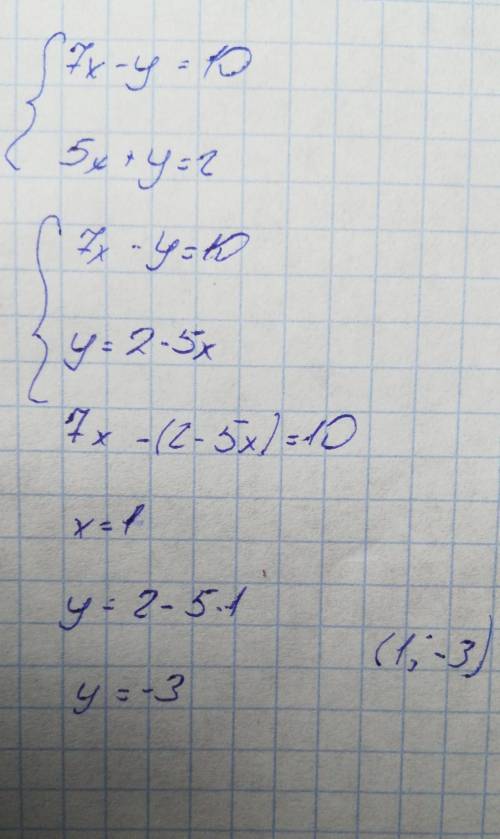 7x - y = 10
5x + y = 2
7x - y = 10
y = 2 - 5x
7x - (2 - 5x) = 10
x = 1
y = 2 - 5·1
(1; -3)
y = -3